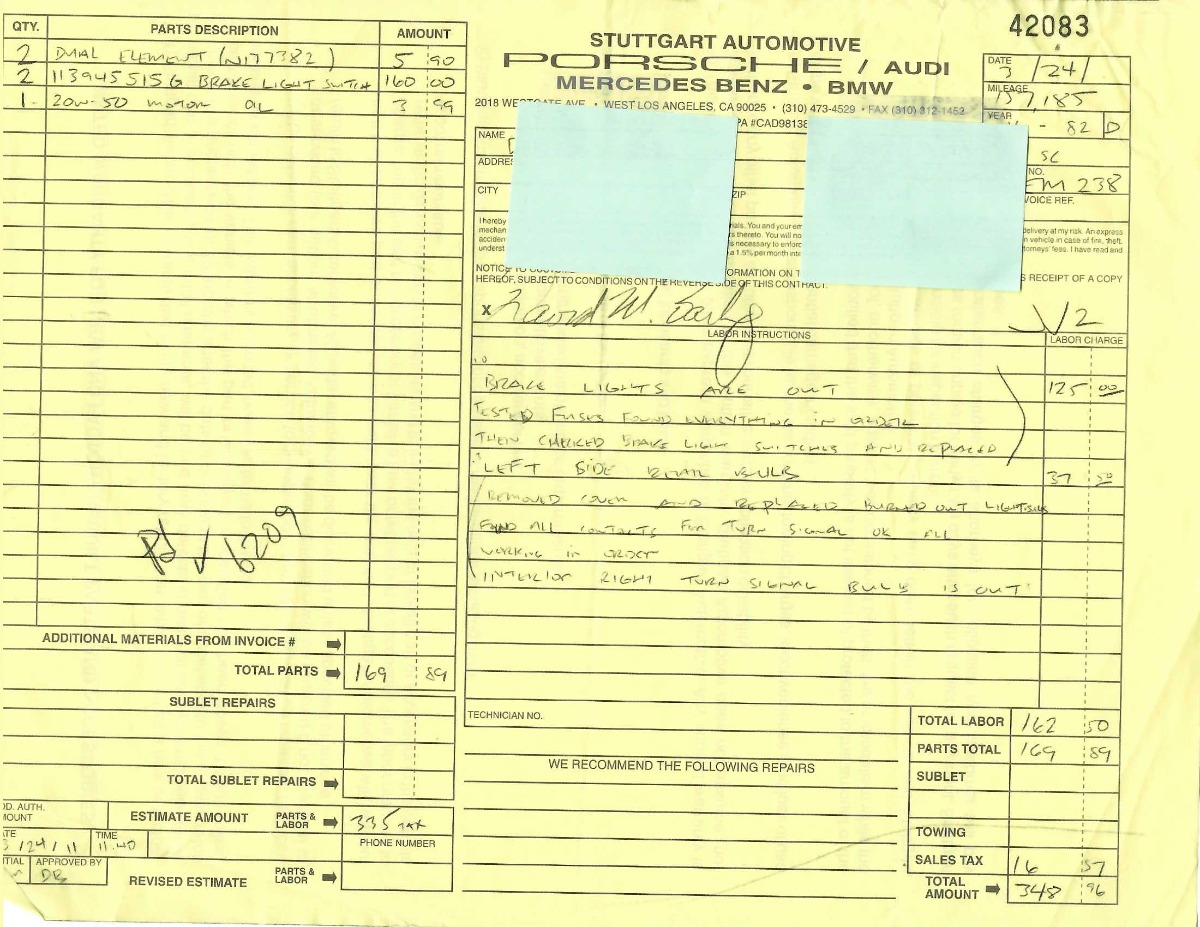 42083
QTY. PARTS DESCRIPTION AMOUNT
2 DUAL ELEMENT (N177382) 5 90
2 113945515G BRAKE LIGHT SWITCH 160 00
1 20W-50 MOTOR OIL 3 99
Pd ✓ 6209
ADDITIONAL MATERIALS FROM INVOICE #
TOTAL PARTS 169 89
SUBLET REPAIRS
TOTAL SUBLET REPAIRS
OD. AUTH.
MOUNT
ESTIMATE AMOUNT PARTS & LABOR 335
ATE 3/24/11 TIME 11.40
PHONE NUMBER
TIAL APPROVED BY DB
REVISED ESTIMATE PARTS & LABOR
STUTTGART AUTOMOTIVE
PORSCHE / AUDI
MERCEDES BENZ • BMW
2018 WESTGATE AVE. • WEST LOS ANGELES, CA 90025 • (310) 473-4529 • FAX (310) 312-1452
PA #CAD98138
DATE 3/24/
MILEAGE 157,185
YEAR - 82 D
SC
NO. 238
VOICE REF.
NAME
ADDRES
CITY ZIP
I hereby rials. You and your em delivery at my risk. An express
mechan s thereto. You will no n vehicle in case of fire, theft.
acciden s necessary to enforc torneys' fees. I have read and
underst a 1.5% per month inte
NOTICE TO ORMATION ON T S RECEIPT OF A COPY
HEREOF, SUBJECT TO CONDITIONS ON THE REVERSE SIDE OF THIS CONTRACT.
X David M.
LABOR INSTRUCTIONS LABOR CHARGE
BRAKE LIGHTS ARE OUT 125 00
TESTED FUSES FOUND EVERYTHING IN ORDER
THEN CHECKED BRAKE LIGHT SWITCHES AND REPLACED
LEFT SIDE REAR BULB 37 50
REMOVED COVER AND REPLACED BURNED OUT LIGHTS
FOUND ALL CONTACTS FOR TURN SIGNAL OK ALL
WORKING IN ORDER
INTERIOR RIGHT TURN SIGNAL BULB IS OUT
TECHNICIAN NO.
WE RECOMMEND THE FOLLOWING REPAIRS
TOTAL LABOR 162 50
PARTS TOTAL 169 89
SUBLET
TOWING
SALES TAX 16 57
TOTAL AMOUNT 348 96